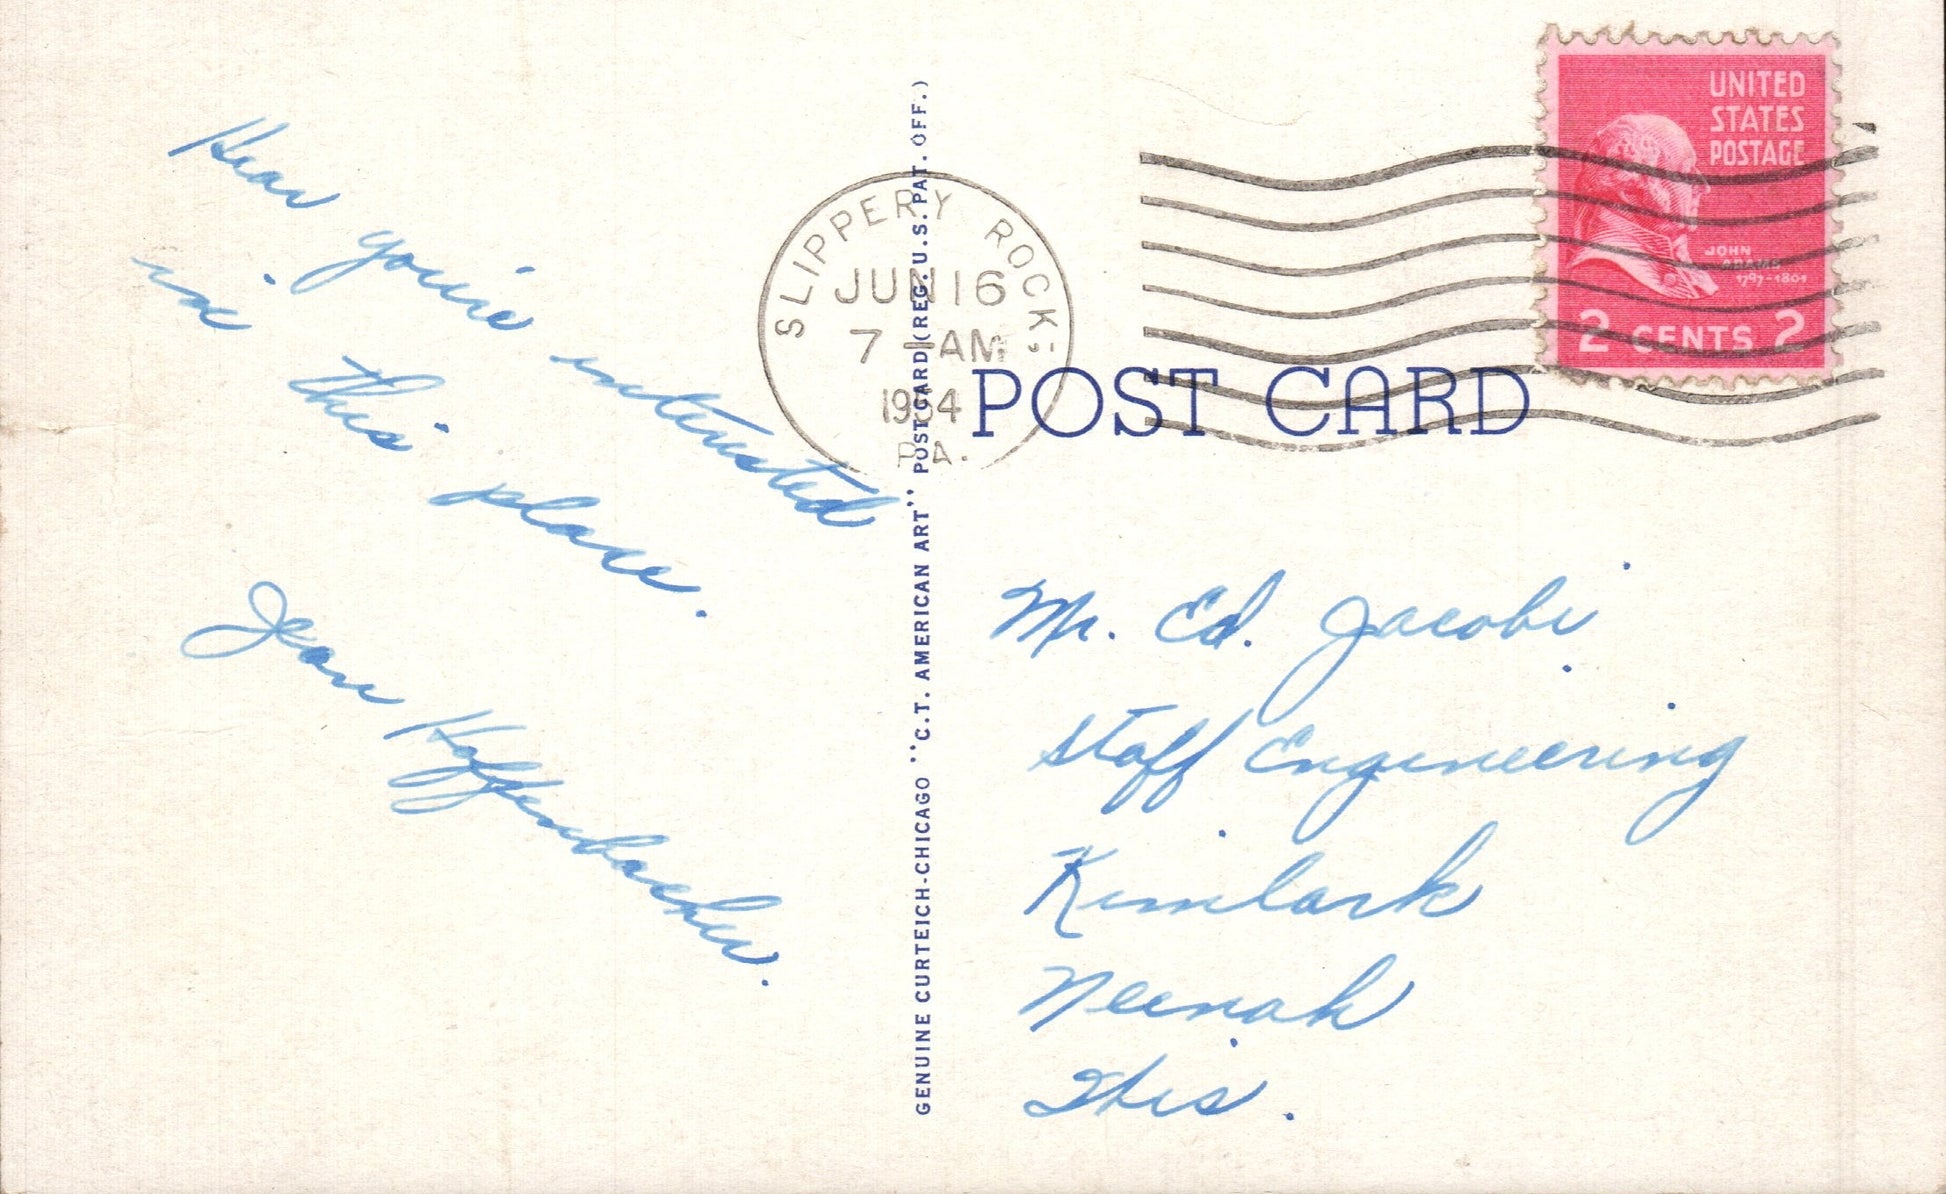 Hear you're interested
in this place.
Jean Haffenbacher.
GENUINE CURTEICH-CHICAGO "C.T. AMERICAN ART" POST CARD (REG. U.S. PAT. OFF.)
SLIPPERY ROCK
JUN 16
7 AM
1954
PA.
UNITED
STATES
POSTAGE
JOHN
ADAMS
1797-1801
2 CENTS 2
POST CARD
Mr. Ed. Jacobi
Staff Engineering
Kimlark
Neenah
Wis.